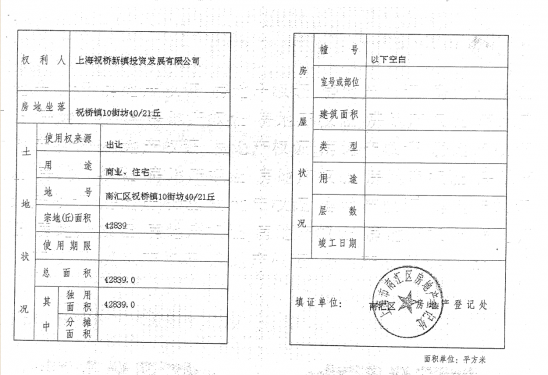 权利人 上海祝桥新镇投资发展有限公司
房地坐落 祝桥镇10街坊40/21丘
土地状况
使用权来源 出让
用途 商业、住宅
地号 南汇区祝桥镇10街坊40/21丘
宗地(丘)面积 42839
使用期限
总面积 42839.0
其中
独用面积 42839.0
分摊面积
房屋状况
幢号 以下空白
室号或部位
建筑面积
类型
用途
层数
竣工日期
填证单位: 南汇区房地产登记处
面积单位: 平方米